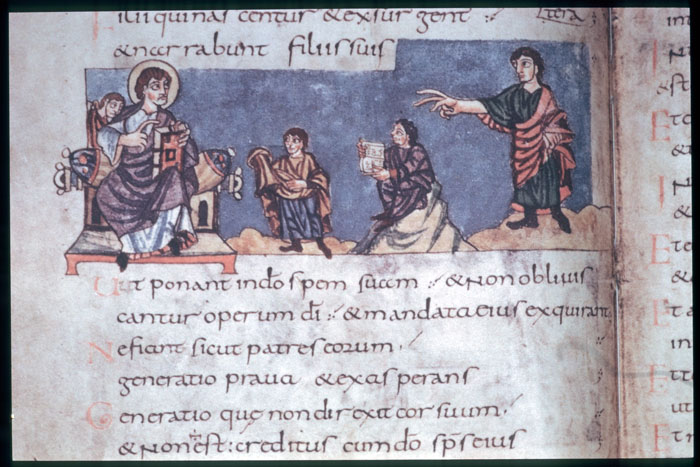 Filii qui nascentur & exsurgent
& narrabunt filiis suis
Ut ponant in dō spem suam : & non obliuis
cantur operum dī : & mandata eius exquirant
Ne fiant sicut patres eorum .
generatio praua & exasperans
Generatio quę non direxit cor suum .
& non est : creditus cum dō sp̄s eius